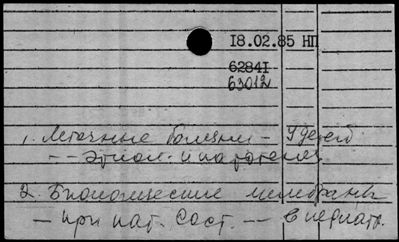 18.02.85 НП
62841
63012
1. Легочные болезни - У детей
-- этиол. и патогенез
2. Биологические мембраны
- при пат. сост. -- в педиатр.